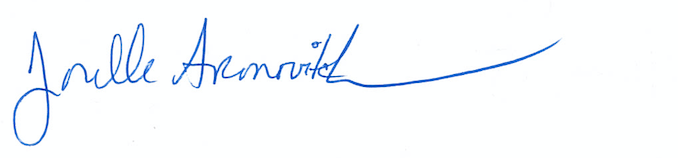 Jorelle Aronovitch